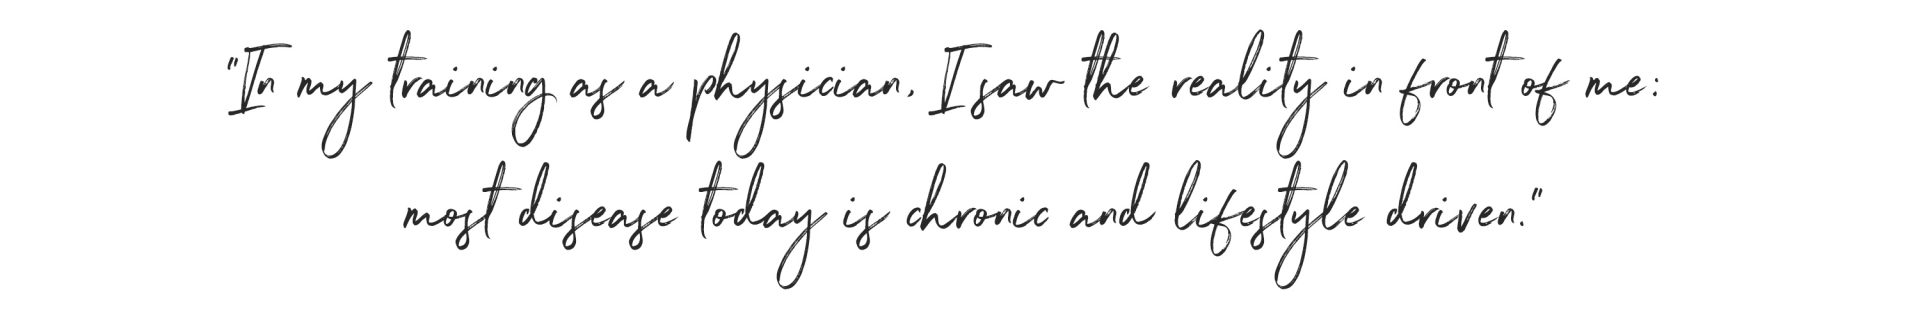 "In my training as a physician, I saw the reality in front of me:
most disease today is chronic and lifestyle driven."